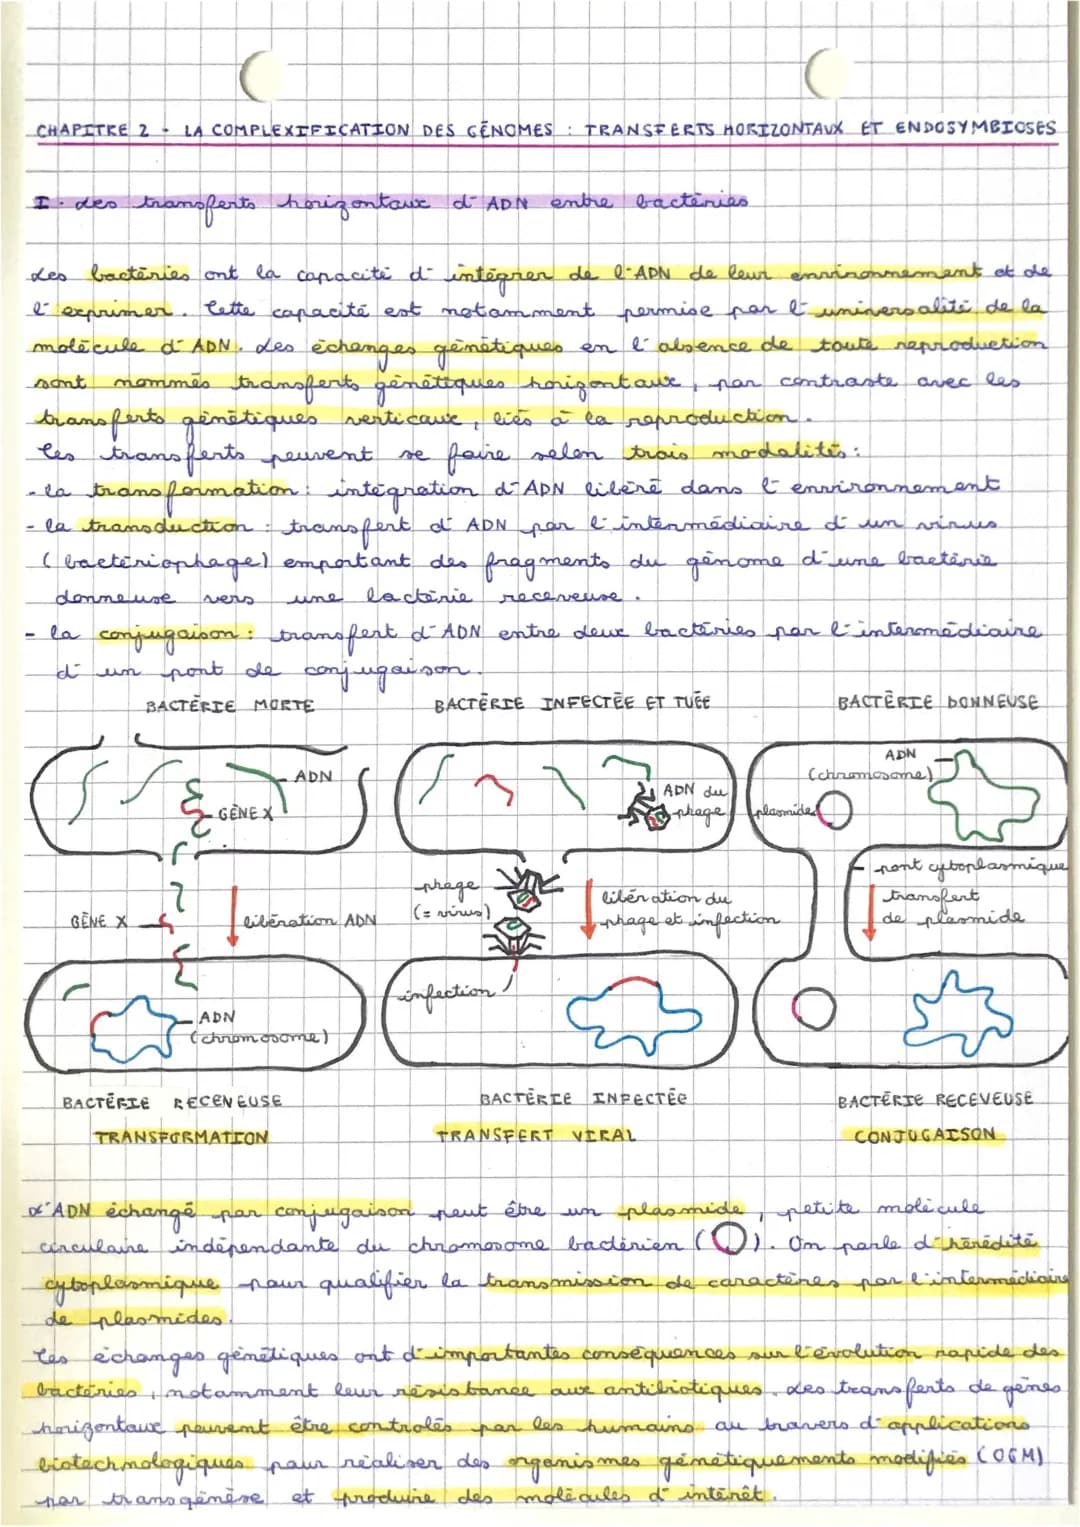 CHAPITRE 2 - LA COMPLEXIFICATION DES GÉNOMES : TRANSFERTS HORIZONTAUX ET ENDOSYMBIOSES
I. des transferts horizontaux d'ADN entre bactéries
Les bactéries ont la capacité d'intégrer de l'ADN de leur environnement et de
l'exprimer. Cette capacité est notamment permise par l'universalité de la
molécule d'ADN. Les échanges génétiques en l'absence de toute reproduction
sont nommés transferts génétiques horizontaux, par contraste avec les
transferts génétiques verticaux, liés à la reproduction.
Ces transferts peuvent se faire selon trois modalités :
- la transformation : intégration d'ADN libéré dans l'environnement
- la transduction : transfert d'ADN par l'intermédiaire d'un virus
(bactériophage) emportant des fragments du génome d'une bactérie
donneuse vers une bactérie receveuse.
- la conjugaison : transfert d'ADN entre deux bactéries par l'intermédiaire
d'un pont de conjugaison.
BACTÉRIE MORTE BACTÉRIE INFECTÉE ET TUÉE BACTÉRIE DONNEUSE
ADN
GÈNE X
GÈNE X
libération ADN
ADN
(chromosome)
ADN du
phage
phage
(= virus)
libération du
phage et infection
infection
ADN
(chromosome)
plasmide
pont cytoplasmique
transfert
de plasmide
BACTÉRIE RECEVEUSE BACTÉRIE INFECTÉE BACTÉRIE RECEVEUSE
TRANSFORMATION TRANSFERT VIRAL CONJUGAISON
L'ADN échangé par conjugaison peut être un plasmide, petite molécule
circulaire indépendante du chromosome bactérien ( ). On parle d'hérédité
cytoplasmique pour qualifier la transmission de caractères par l'intermédiaire
de plasmides.
Ces échanges génétiques ont d'importantes conséquences sur l'évolution rapide des
bactéries, notamment leur résistance aux antibiotiques. Les transferts de gènes
horizontaux peuvent être controlés par les humains au travers d'applications
biotechnologiques pour réaliser des organismes génétiquements modifiés (OGM)
par transgénèse et produire des molécules d'intérêt.